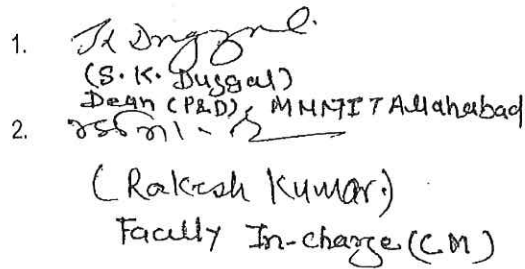 1. SK Duggal
(S.K. Duggal)
Dean (P&D), MNNIT Allahabad
2.
(Rakesh Kumar)
Faculty In-charge (CM)